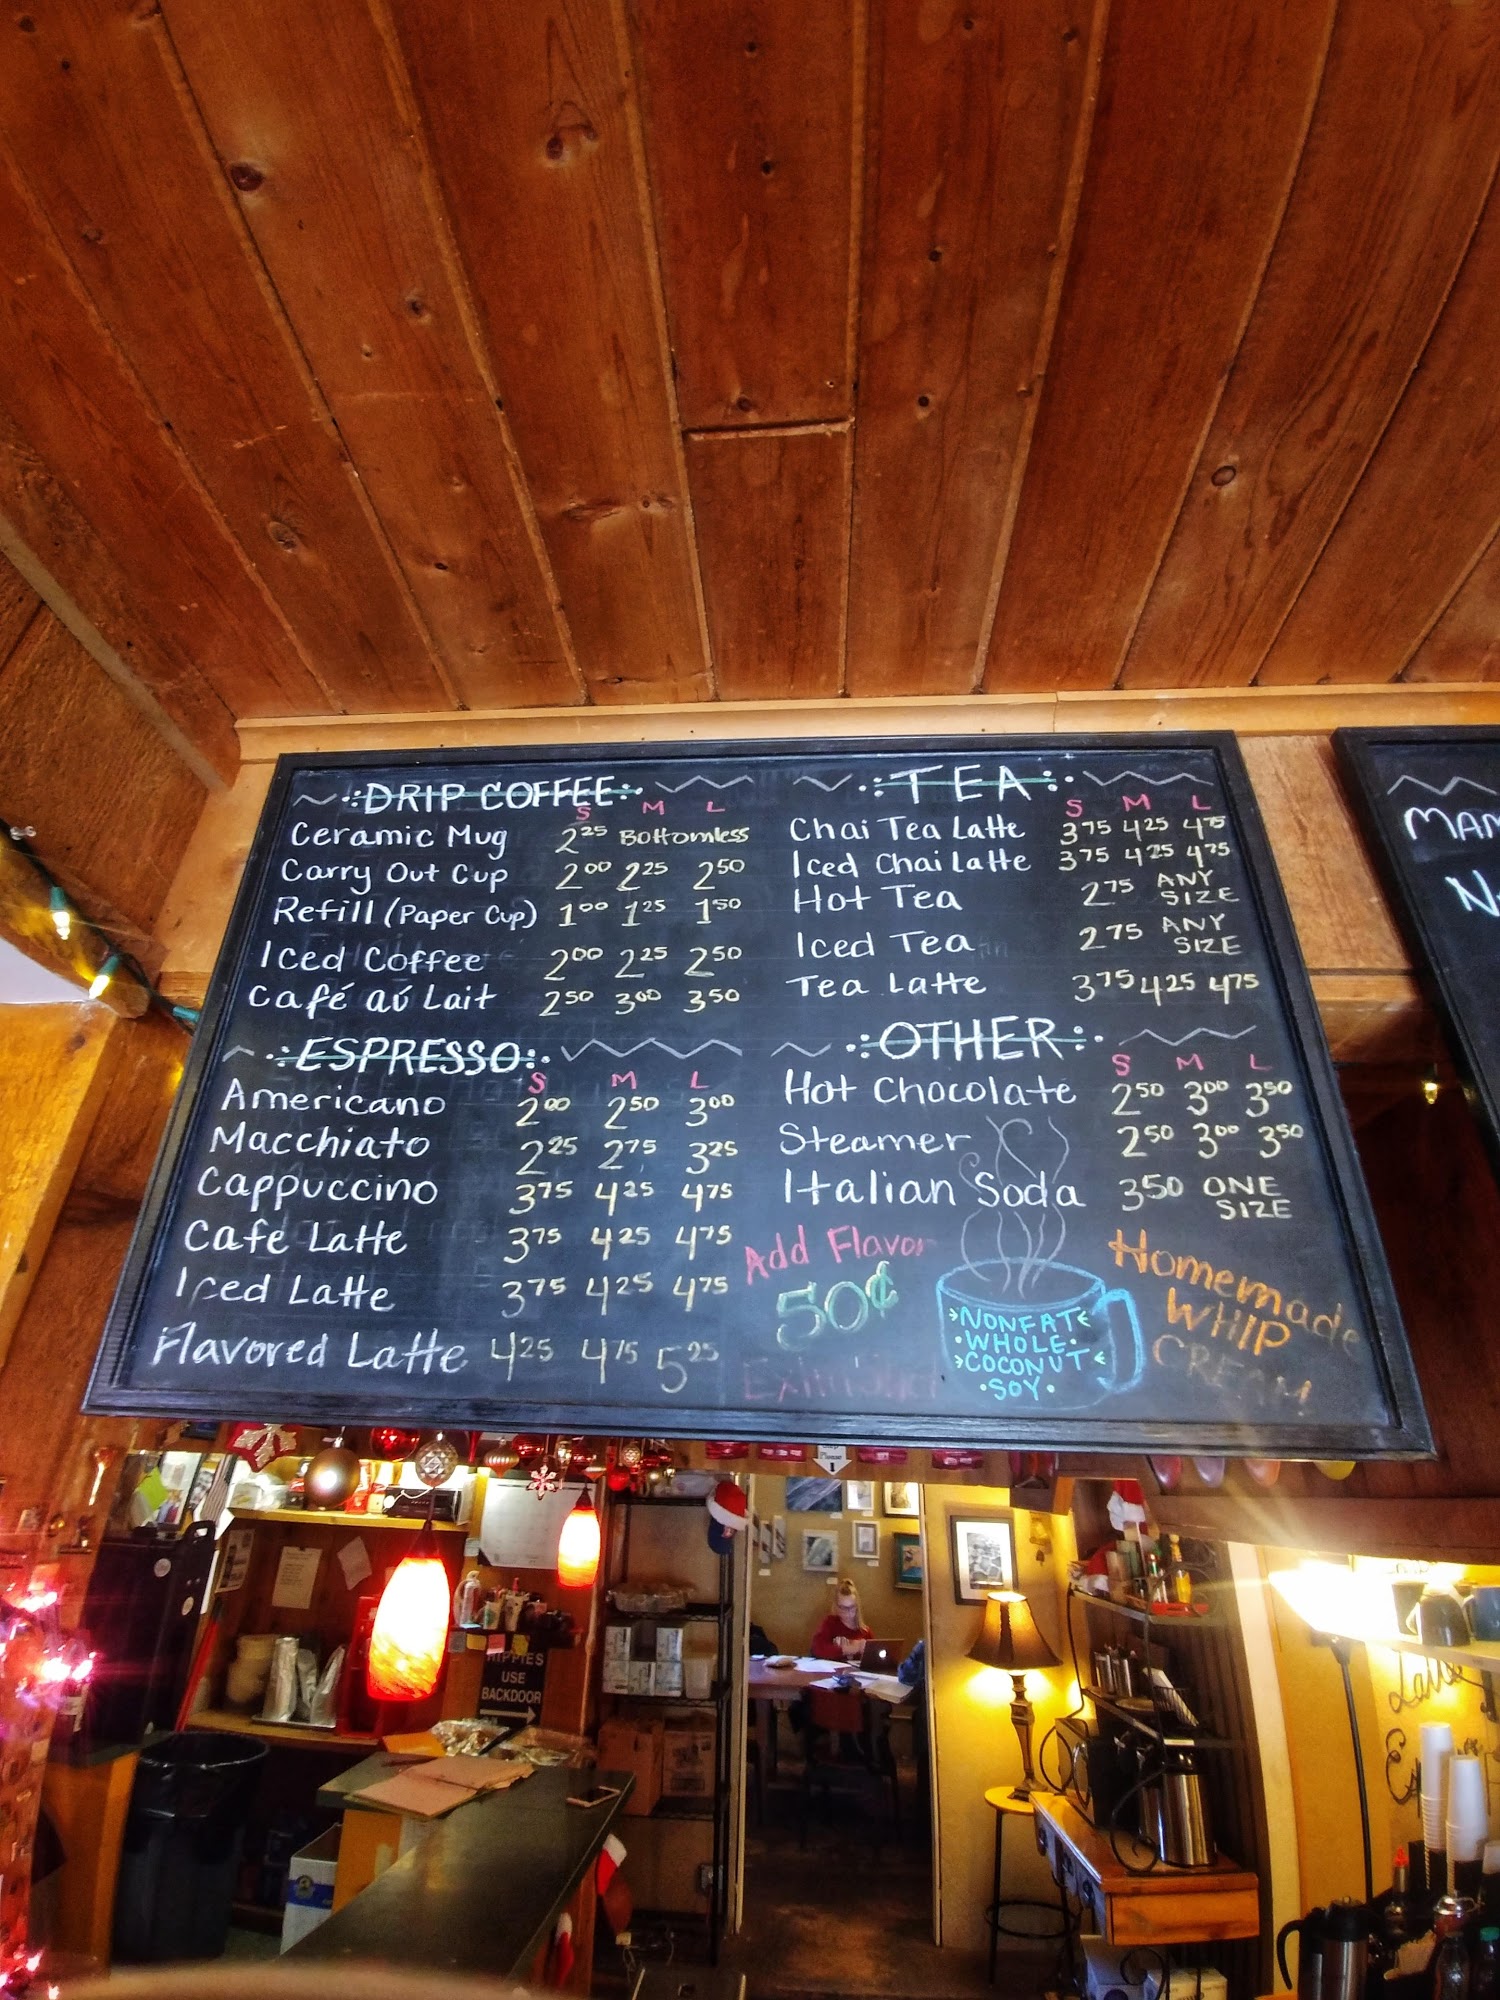 DRIP COFFEE
S M L
Ceramic Mug 2.25 Bottomless
Carry Out Cup 2.00 2.25 2.50
Refill (Paper Cup) 1.00 1.25 1.50
Iced Coffee 2.00 2.25 2.50
Café aú Lait 2.50 3.00 3.50
ESPRESSO
S M L
Americano 2.00 2.50 3.00
Macchiato 2.25 2.75 3.25
Cappuccino 3.75 4.25 4.75
Cafe Latte 3.75 4.25 4.75
Iced Latte 3.75 4.25 4.75
Flavored Latte 4.25 4.75 5.25
TEA
S M L
Chai Tea Latte 3.75 4.25 4.75
Iced Chai Latte 3.75 4.25 4.75
Hot Tea 2.75 ANY SIZE
Iced Tea 2.75 ANY SIZE
Tea Latte 3.75 4.25 4.75
OTHER
S M L
Hot Chocolate 2.50 3.00 3.50
Steamer 2.50 3.00 3.50
Italian Soda 3.50 ONE SIZE
Add Flavor
50¢
NONFAT
WHOLE
COCONUT
SOY
Homemade
WHIP
CREAM
HIPPIES
USE
BACKDOOR